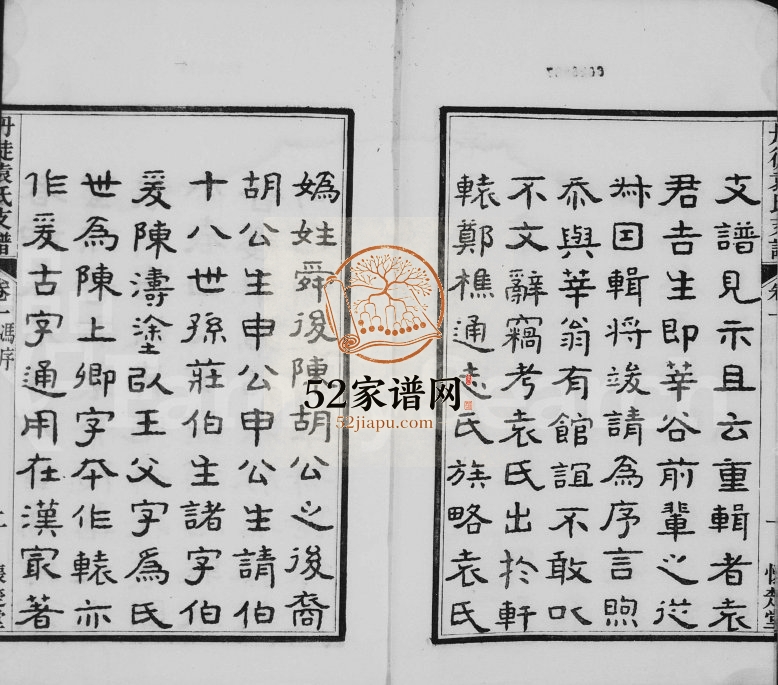 支譜見示且云重輯者袁
君吉生即莘谷前輩之從
叔囙輯將竣請為序言煦
忝與莘翁有館誼不敢以
不文辭竊考袁氏出於軒
轅鄭樵通志氏族略袁氏
媯姓舜後陳胡公之後裔
胡公生申公申公生請伯
十八世孫莊伯生諸字伯
爰陳濤塗以王父字為氏
世為陳上卿字本作轅亦
作爰古字通用在漢㝡著
丹徒袁氏支譜
卷一
馮序
52家谱网
52jiapu.com